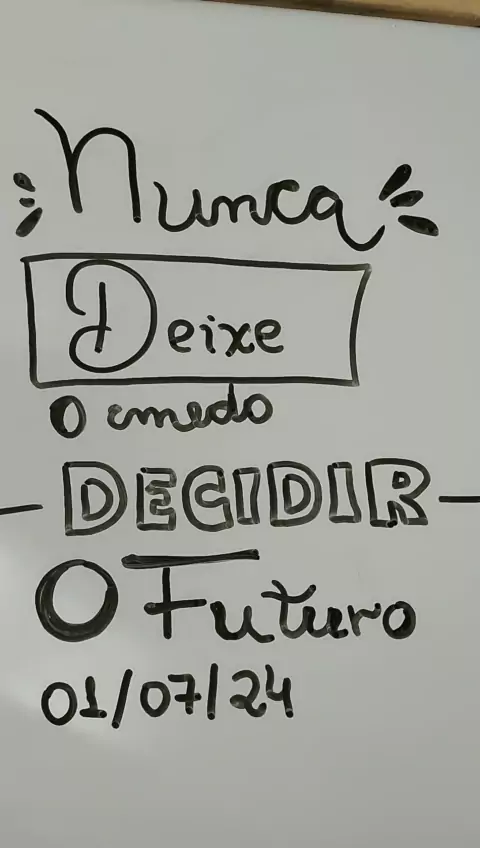 Nunca
Deixe
O medo
DECIDIR
O Futuro
01/07/24